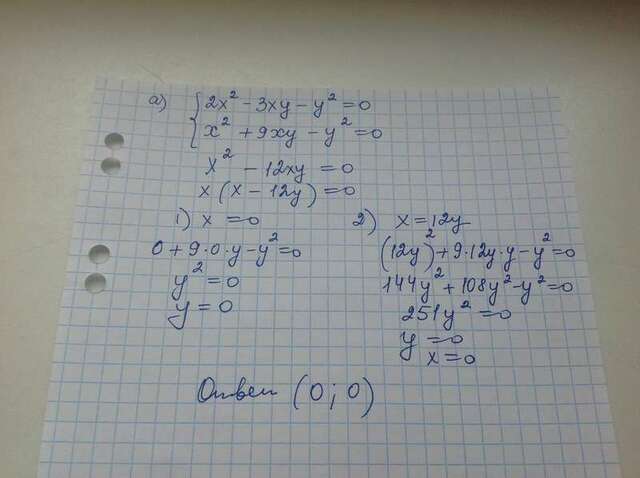 а) { 2x² - 3xy - y² = 0
x² + 9xy - y² = 0
x² - 12xy = 0
x (x - 12y) = 0
1) x = 0
0 + 9·0·y - y² = 0
y² = 0
y = 0
2) x = 12y
(12y)² + 9·12y·y - y² = 0
144y² + 108y² - y² = 0
251y² = 0
y = 0
x = 0
Ответ (0; 0)